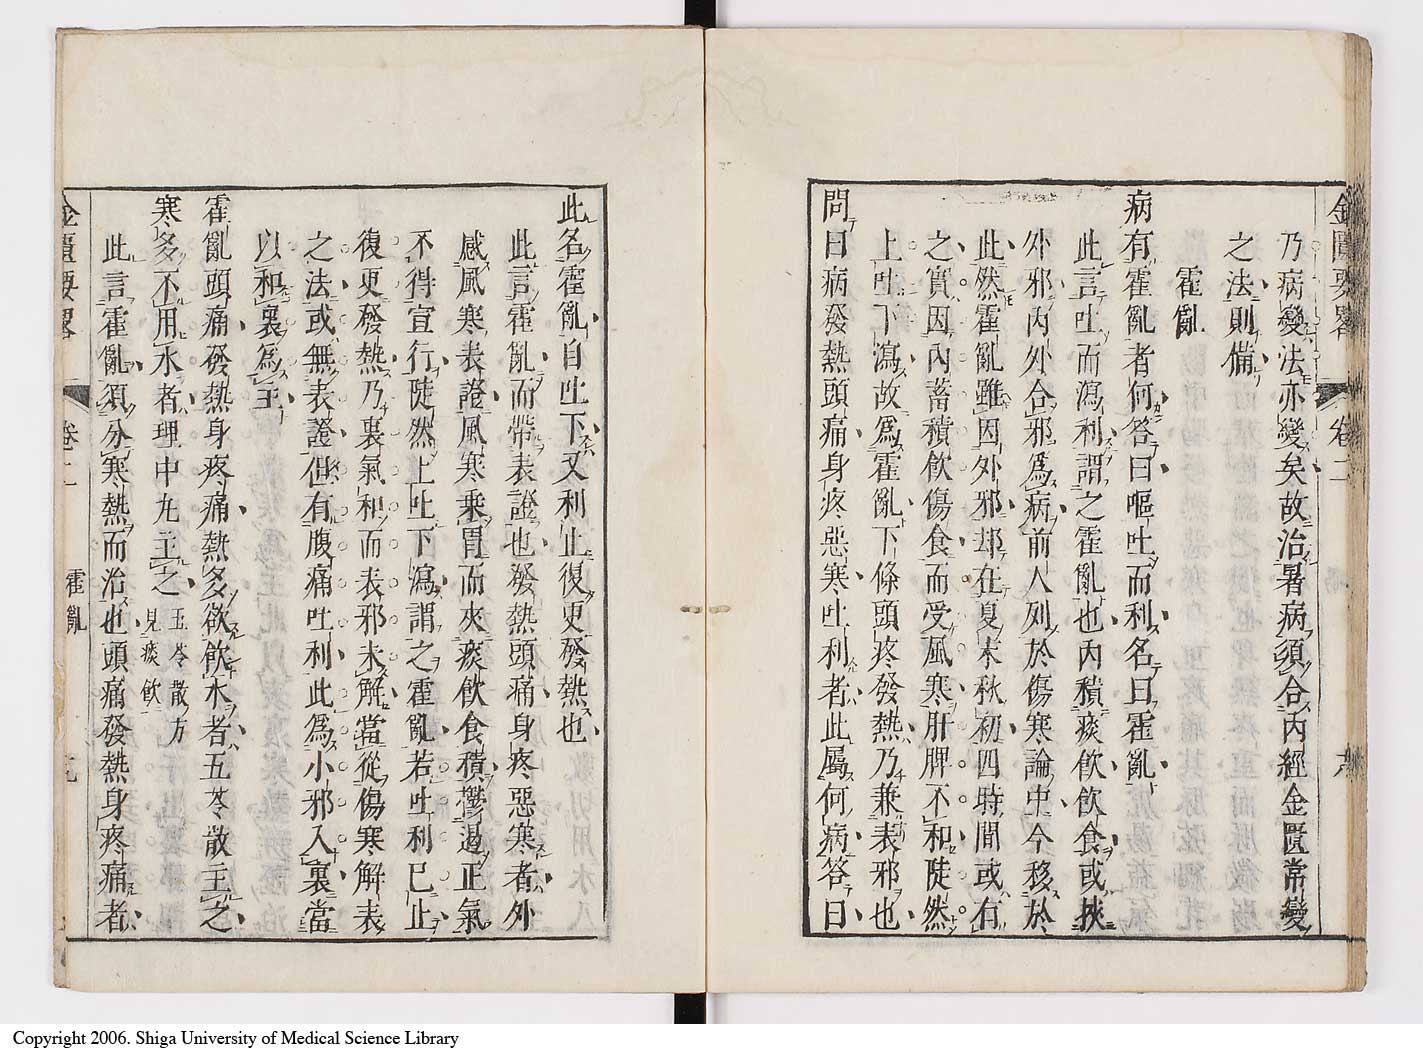 乃病變法亦變矣故治暑病須合內經金匱常變
之法則備
霍亂
病有霍亂者何答曰嘔吐而利名曰霍亂
此言吐而瀉利謂之霍亂也內積痰飲飲食或挾
外邪內外合邪爲病前人列於傷寒論中今移於
此然霍亂雖因外邪却在夏末秋初四時間或有
之實因內蓄積飲傷食而受風寒肝脾不和陡然
上吐下瀉故爲霍亂下條頭疼發熱乃兼表邪也
問曰病發熱頭痛身疼惡寒吐利者此屬何病答曰
此名霍亂自吐下又利止復更發熱也
此言霍亂而帶表證也發熱頭痛身疼惡寒者外
感風寒表證風寒乗胃而夾痰飲食積鬱遏正氣
不得宣行陡然上吐下瀉謂之霍亂若吐利已止
復更發熱乃裏氣和而表邪未解當從傷寒解表
之法或無表證但有腹痛吐利此爲小邪入裏當
以和裏爲主
霍亂頭痛發熱身疼痛熱多欲飲水者五苓散主之
寒多不用水者理中丸主之
五苓散方
見痰飲
此言霍亂須分寒熱而治也頭痛發熱身疼痛者
金匱要畧
卷二
霍亂